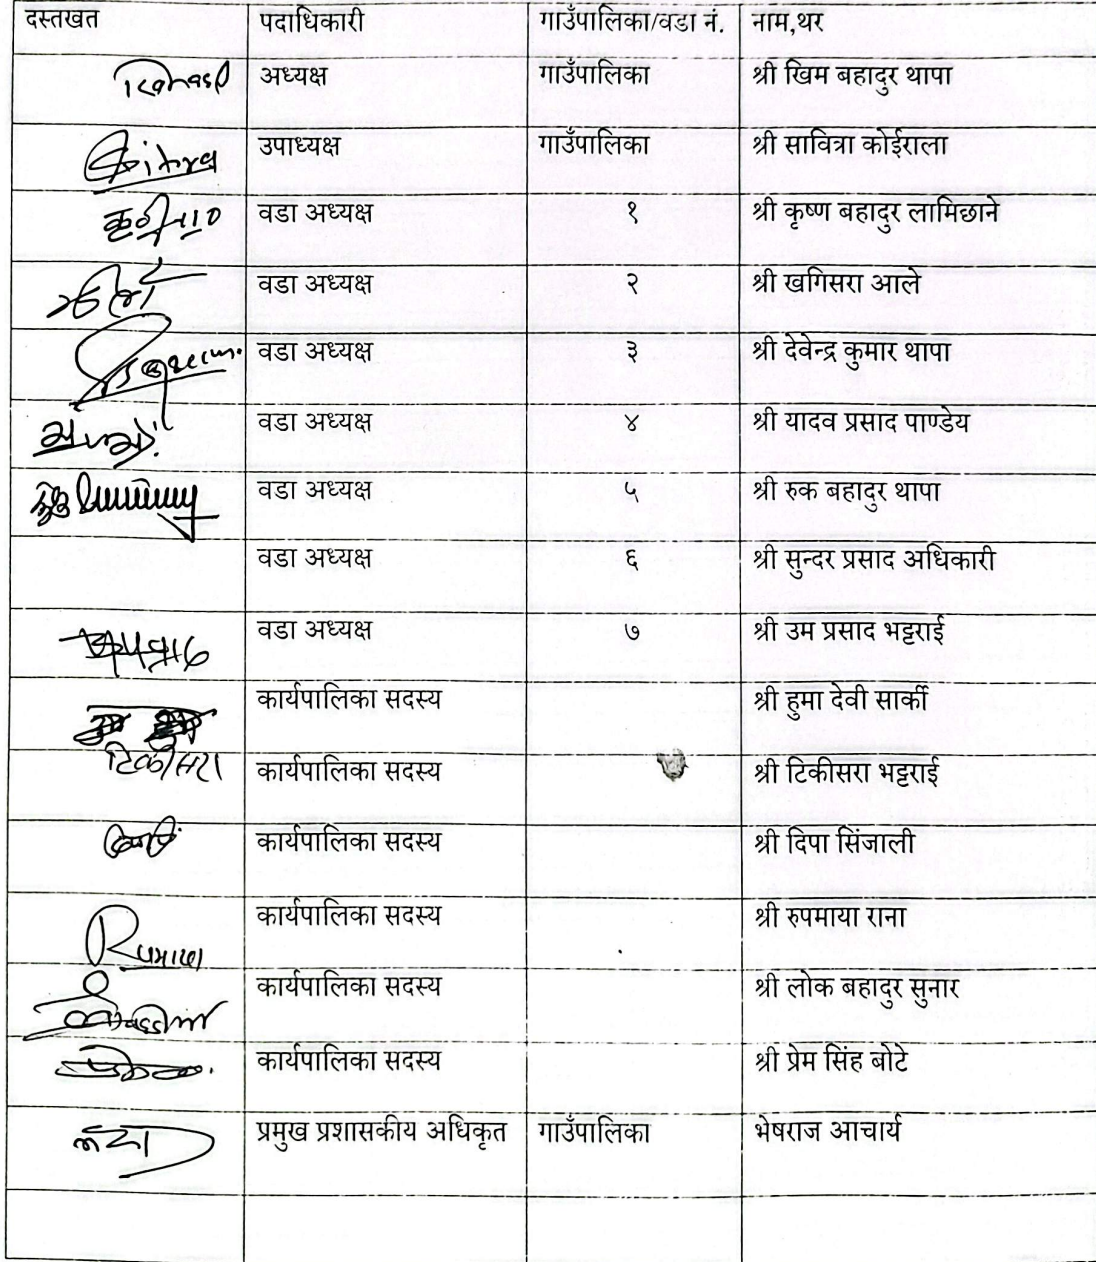 दस्तखत पदाधिकारी गाउँपालिका/वडा नं. नाम,थर
अध्यक्ष गाउँपालिका श्री खिम बहादुर थापा
उपाध्यक्ष गाउँपालिका श्री सावित्रा कोईराला
वडा अध्यक्ष १ श्री कृष्ण बहादुर लामिछाने
वडा अध्यक्ष २ श्री खगिसरा आले
वडा अध्यक्ष ३ श्री देवेन्द्र कुमार थापा
वडा अध्यक्ष ४ श्री यादव प्रसाद पाण्डेय
वडा अध्यक्ष ५ श्री रुक बहादुर थापा
वडा अध्यक्ष ६ श्री सुन्दर प्रसाद अधिकारी
वडा अध्यक्ष ७ श्री उम प्रसाद भट्टराई
कार्यपालिका सदस्य श्री हुमा देवी सार्की
टिकीसरा कार्यपालिका सदस्य श्री टिकीसरा भट्टराई
कार्यपालिका सदस्य श्री दिपा सिंजाली
कार्यपालिका सदस्य श्री रुपमाया राना
कार्यपालिका सदस्य श्री लोक बहादुर सुनार
कार्यपालिका सदस्य श्री प्रेम सिंह बोटे
प्रमुख प्रशासकीय अधिकृत गाउँपालिका भेषराज आचार्य